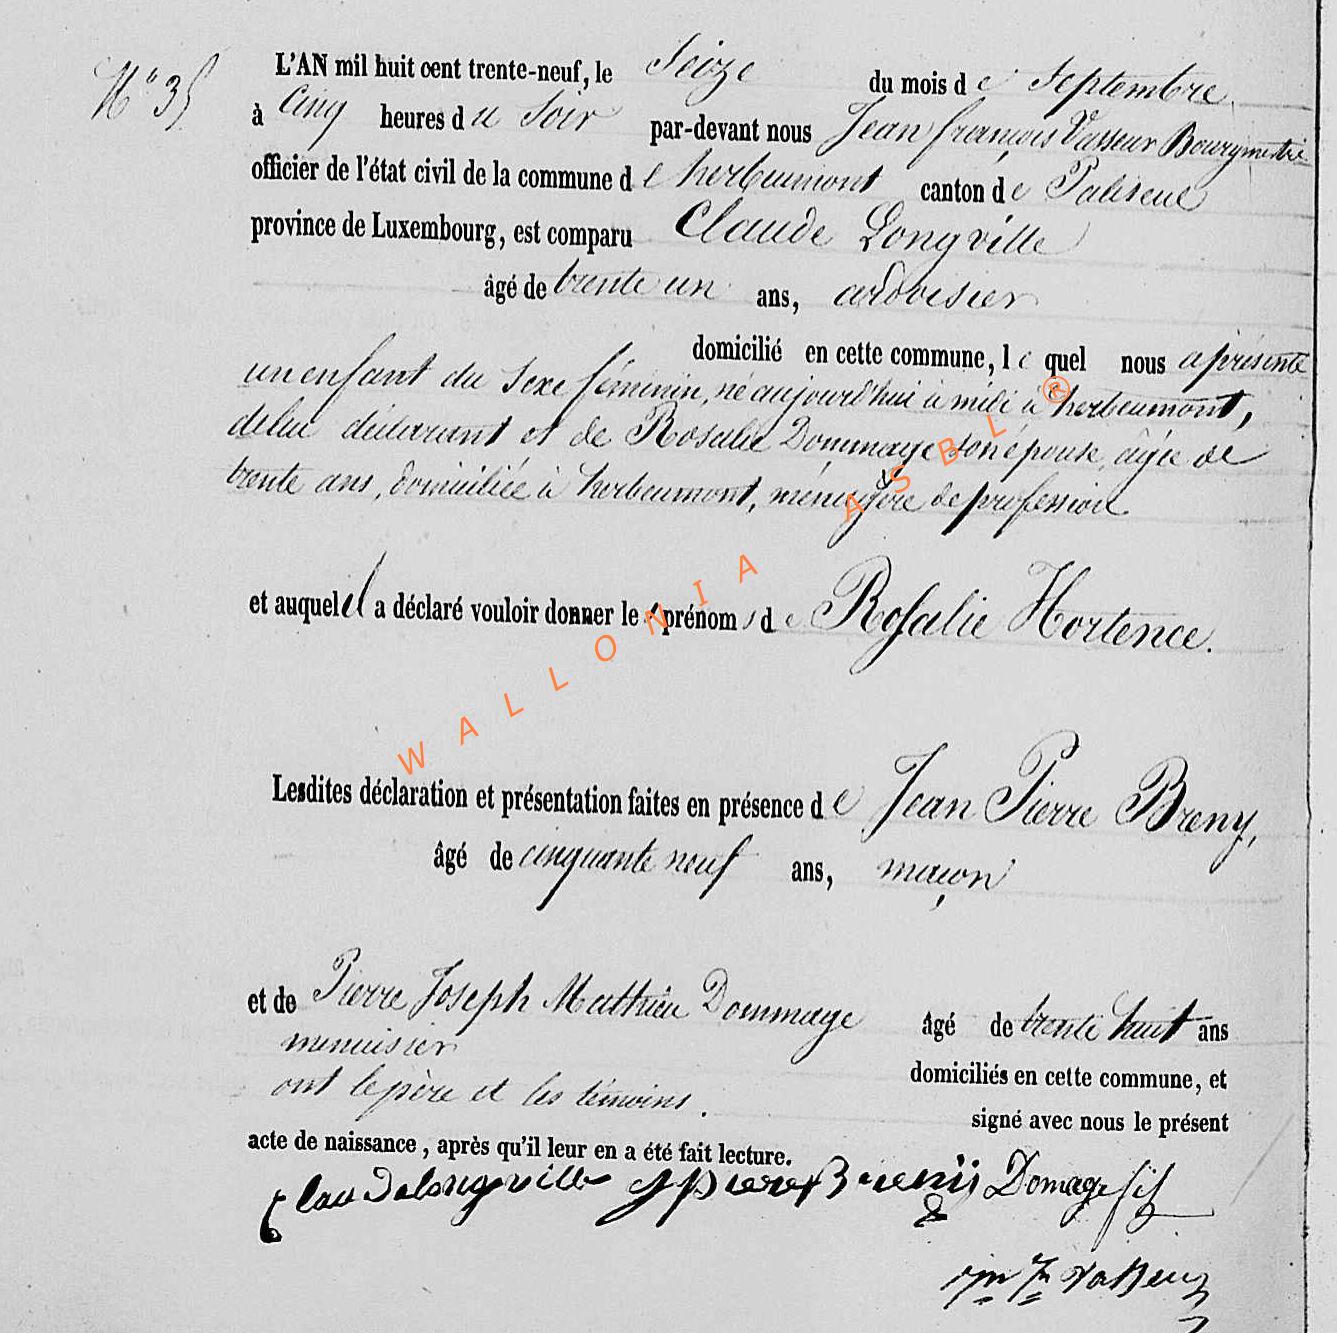 N° 35
L'AN mil huit cent trente-neuf, le Seize du mois de Septembre
à cinq heures du soir par-devant nous Jean françois Vasseur Bourgmestre
officier de l'état civil de la commune de herbeumont canton de Paliseul
province de Luxembourg, est comparu Claude Longville
âgé de trente un ans, ardoisier
domicilié en cette commune, lequel nous a présenté
un enfant du sexe féminin, né aujourd'hui à midi à herbeumont,
de lui déclarant et de Rosalie Dommage son épouse, âgée de
trente ans, domiciliée à herbeumont, ménagère de profession
et auquel il a déclaré vouloir donner les prénoms de Rosalie Hortence.
Lesdites déclaration et présentation faites en présence de Jean Pierre Breny,
âgé de cinquante neuf ans, maçon
et de Pierre Joseph Mathieu Dommage âgé de trente huit ans
menuisier
domiciliés en cette commune, et
ont le père et les témoins.
signé avec nous le présent
acte de naissance, après qu'il leur en a été fait lecture.
Claudelongville Breny Domage fils
Vasseur
WALLONIA ASBL ®